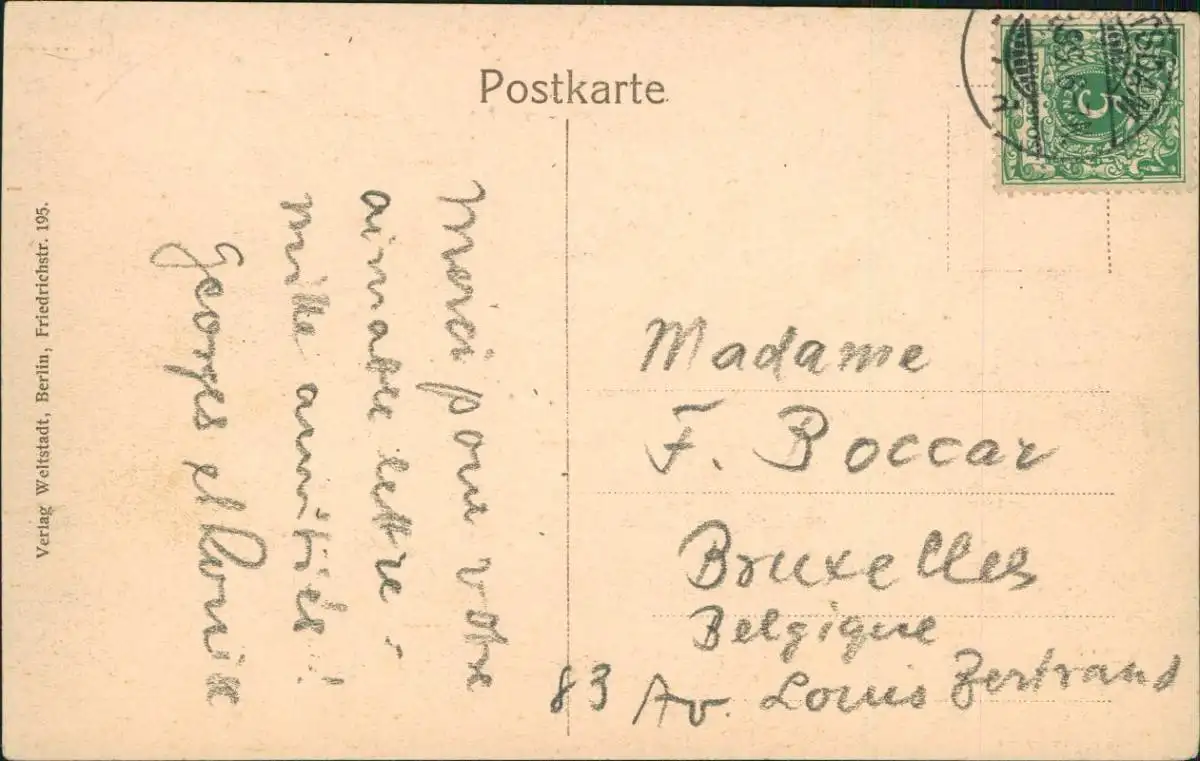 Postkarte
Merci pour votre
aimable lettre -
mille amitiés !
Georges et
Madame
F. Boccar
Bruxelles
Belgique
83 Av. Louis Bertrand
Verlag Weltstadt, Berlin, Friedrichstr. 195.